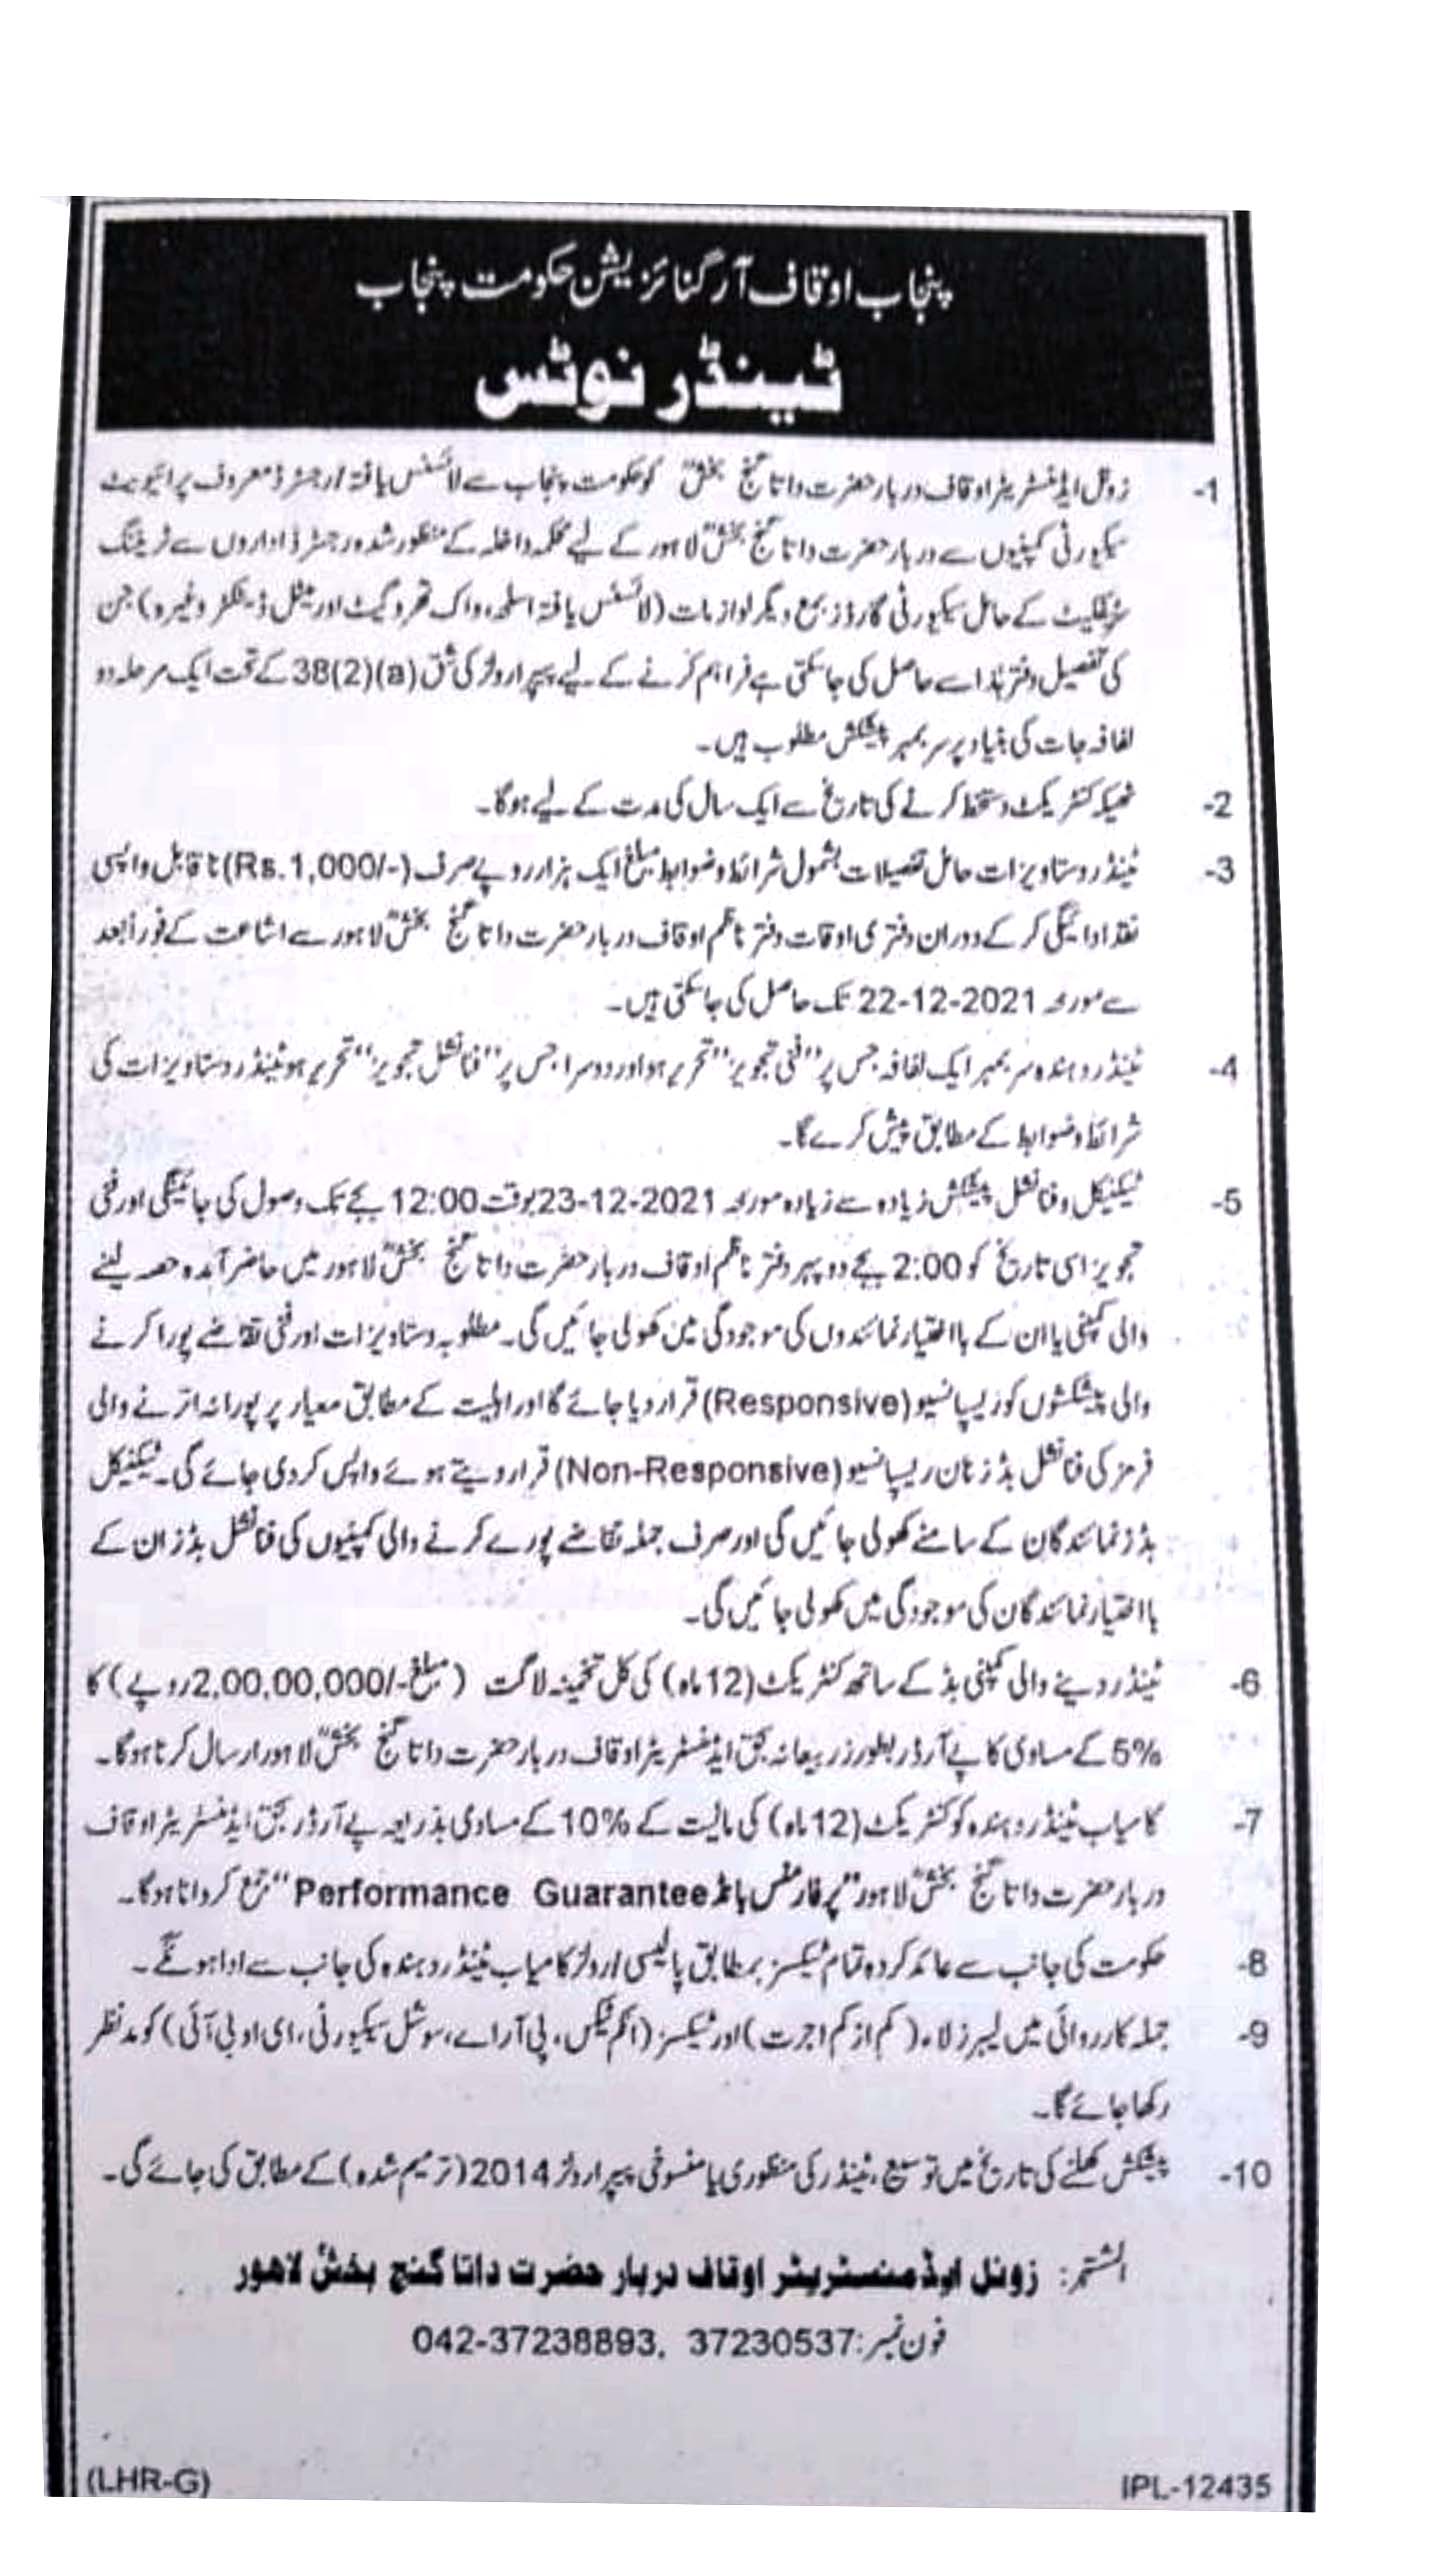 پنجاب اوقاف آرگنائزیشن حکومت پنجاب
ٹینڈر نوٹس
1- زونل ایڈمنسٹریٹر اوقاف دربار حضرت داتا گنج بخشؒ کو حکومت پنجاب سے لائسنس یافتہ/رجسٹرڈ معروف پرائیویٹ
سیکیورٹی کمپنیوں سے دربار حضرت داتا گنج بخشؒ لاہور کے لیے محکمہ داخلہ کے منظور شدہ رجسٹرڈ اداروں سے ٹریننگ
سرٹیفکیٹ کے حامل سیکیورٹی گارڈز بمع دیگر لوازمات (لائسنس یافتہ اسلحہ، واک تھرو گیٹ اور میٹل ڈیٹیکٹر وغیرہ) جن
کی تفصیل دفتر ہٰذا سے حاصل کی جاسکتی ہے فراہم کرنے کے لیے پیپرا رولز کی شق 38(2)(a) کے تحت ایک مرحلہ دو
لفافہ جات کی بنیاد پر سربمہر پیشکش مطلوب ہیں۔
2- ٹھیکہ کنٹریکٹ دستخط کرنے کی تاریخ سے ایک سال کی مدت کے لیے ہوگا۔
3- ٹینڈر دستاویزات حامل تفصیلات بشمول شرائط و ضوابط مبلغ ایک ہزار روپے صرف (Rs.1,000/-) نا قابل واپسی
نقد ادائیگی کر کے دوران دفتری اوقات دفتر ناظم اوقاف دربار حضرت داتا گنج بخشؒ لاہور سے اشاعت کے فوراً بعد
سے مورخہ 22-12-2021 تک حاصل کی جاسکتی ہیں۔
4- ٹینڈر دہندہ سربمہر ایک لفافہ جس پر "فنی تجویز" تحریر ہو اور دوسرا جس پر "فنانشل تجویز" تحریر ہو ٹینڈر دستاویزات کی
شرائط و ضوابط کے مطابق پیش کرے گا۔
5- ٹیکنیکل و فنانشل پیشکش زیادہ سے زیادہ مورخہ 23-12-2021 بوقت 12:00 بجے تک وصول کی جائینگی اور فنی
تجویز اسی تاریخ کو 2:00 بجے دوپہر دفتر ناظم اوقاف دربار حضرت داتا گنج بخشؒ لاہور میں حاضر آمدہ حصہ لینے
والی کمپنی یا ان کے بااختیار نمائندوں کی موجودگی میں کھولی جائیں گی۔ مطلوبہ دستاویزات اور فنی تقاضے پورا کرنے
والی پیشکشوں کو ریسپانسیو (Responsive) قرار دیا جائے گا اور اہلیت کے مطابق معیار پر پورا نہ اترنے والی
فرمز کی فنانشل بڈز نان ریسپانسیو (Non-Responsive) قرار دیتے ہوئے واپس کر دی جائے گی۔ ٹیکنیکل
بڈز نمائندگان کے سامنے کھولی جائیں گی اور صرف جملہ تقاضے پورے کرنے والی کمپنیوں کی فنانشل بڈز ان کے
بااختیار نمائندگان کی موجودگی میں کھولی جائیں گی۔
6- ٹینڈر دینے والی کمپنی بڈ کے ساتھ کنٹریکٹ (12 ماہ) کی کل تخمینہ لاگت (مبلغ -/2,00,00,000 روپے) کا
5% کے مساوی کا پے آرڈر بطور زر بیعانہ بحق ایڈمنسٹریٹر اوقاف دربار حضرت داتا گنج بخشؒ لاہور ارسال کرنا ہوگا۔
7- کامیاب ٹینڈر دہندہ کو کنٹریکٹ (12 ماہ) کی مالیت کے 10% کے مساوی بذریعہ پے آرڈر بحق ایڈمنسٹریٹر اوقاف
دربار حضرت داتا گنج بخشؒ لاہور "پرفارمنس بانڈ Performance Guarantee" جمع کروانا ہوگا۔
8- حکومت کی جانب سے عائد کردہ تمام ٹیکسز بمطابق پالیسی/رولز کامیاب ٹینڈر دہندہ کی جانب سے ادا ہونگے۔
9- جملہ کارروائی میں لیبرز لاء، (کم از کم اجرت) اور ٹیکسز (انکم ٹیکس، پی آر اے، سوشل سیکیورٹی، ای او بی آئی) کو مدنظر
رکھا جائے گا۔
10- پیشکش کھلنے کی تاریخ میں توسیع، ٹینڈر کی منظوری یا منسوخی پیپرا رولز 2014 (ترمیم شدہ) کے مطابق کی جائے گی۔
المشتہر: زونل ایڈمنسٹریٹر اوقاف دربار حضرت داتا گنج بخشؒ لاہور
فون نمبر: 042-37238893, 37230537
(LHR-G) IPL-12435